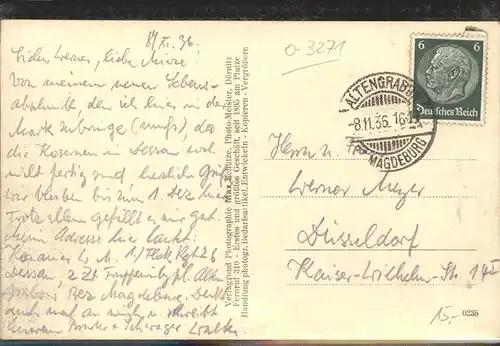 8/XI. 36.
Lieber Werner, liebe Mimi!
Von meinem neuen Lebens-
abschnitt, den ich hier in der
Mark zubringe (muß), da
die Kasernen in Dessau noch
nicht fertig sind, herzliche Grüße
Wir bleiben bis zum 1. Dez hier
Trotz allem gefällt es mir gut.
Meine Adresse hier lautet:
Kanonier W. M. 1/Flak Rgt 26
Dessau, z Zt Truppenübpl. Alten
grabow Bez Magdeburg. Denkt
auch mal an mich u. schreibt
Eurem Bruder u Schwager Walter
Verlag und Photographie Max Schütze, Photo-Meister, Dörnitz
Fernruf 310 · Erstes und größtes Geschäft, seit 1895 am Platze
Handlung photogr. Bedarfsartikel. Entwickeln - Kopieren - Vergrößern
0-3271
ALTENGRABOW
-8.11.36. 16-
MAGDEBURG
6 6
Deutsches Reich
Herrn u. Frau
Werner Meyer
Düsseldorf
Kaiser-Wilhelm-Str.
15,-
0235